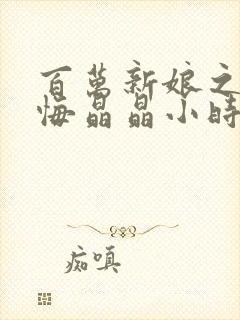 百萬新娘之
悔晶晶小時
痴嗔